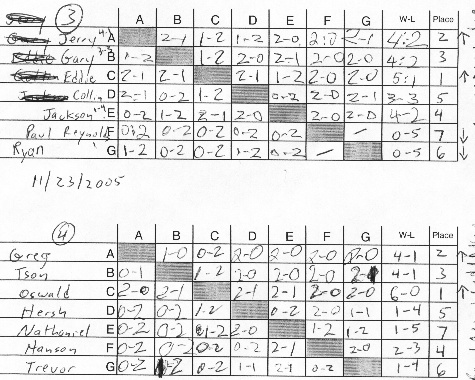 3 A B C D E F G W-L Place
Jerry A 2-1 1-2 1-2 2-0 2:0 2-1 4:2 2
Gary B 1-2 1-2 2-0 2-1 2-0 2-0 4:2 3
Eddie C 2-1 2-1 2-1 1-2 2-0 2-0 5:1 1
D 2-1 0-2 1-2 0-2 2-0 2-1 3-3 5
Jackson E 0-2 1-2 2-1 2-0 2-0 2-0 4-2 4
Paul Reynold F 0:2 0-2 0-2 0-2 0-2 0-5 7
Ryan G 1-2 0-2 0-2 1-2 0-2 0-5 6
11/23/2005
4 A B C D E F G W-L Place
Greg A 1-0 0-2 2-0 2-0 2-0 2-0 4-1 2
Tson B 0-1 1-2 2-0 2-0 2-0 4-1 3
Oswald C 2-0 2-1 2-1 2-1 2-0 2-0 6-0 1
Hersh D 0-2 0-2 1-2 0-2 2-0 1-1 1-4 5
Nathaniel E 0-2 0-2 1-2 2-0 1-2 1-2 1-5 7
Hanson F 0-2 0-2 0-2 0-2 2-1 2-0 2-3 4
Trevor G 0-2 0-2 0-2 1-1 2-1 0-2 1-4 6